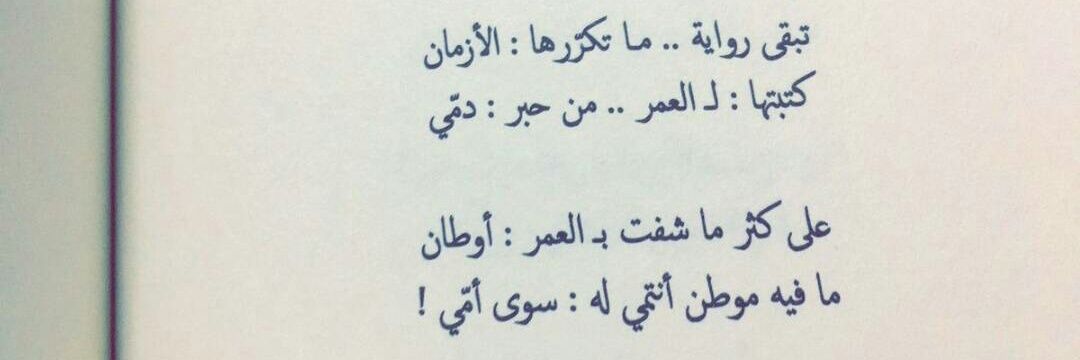 تبقى رواية .. ما تكرّرها : الأزمان
كتبتها : لـ العمر .. من حبر : دمّي
على كثر ما شفت بـ العمر : أوطان
ما فيه موطن أنتمي له : سوى أمّي !